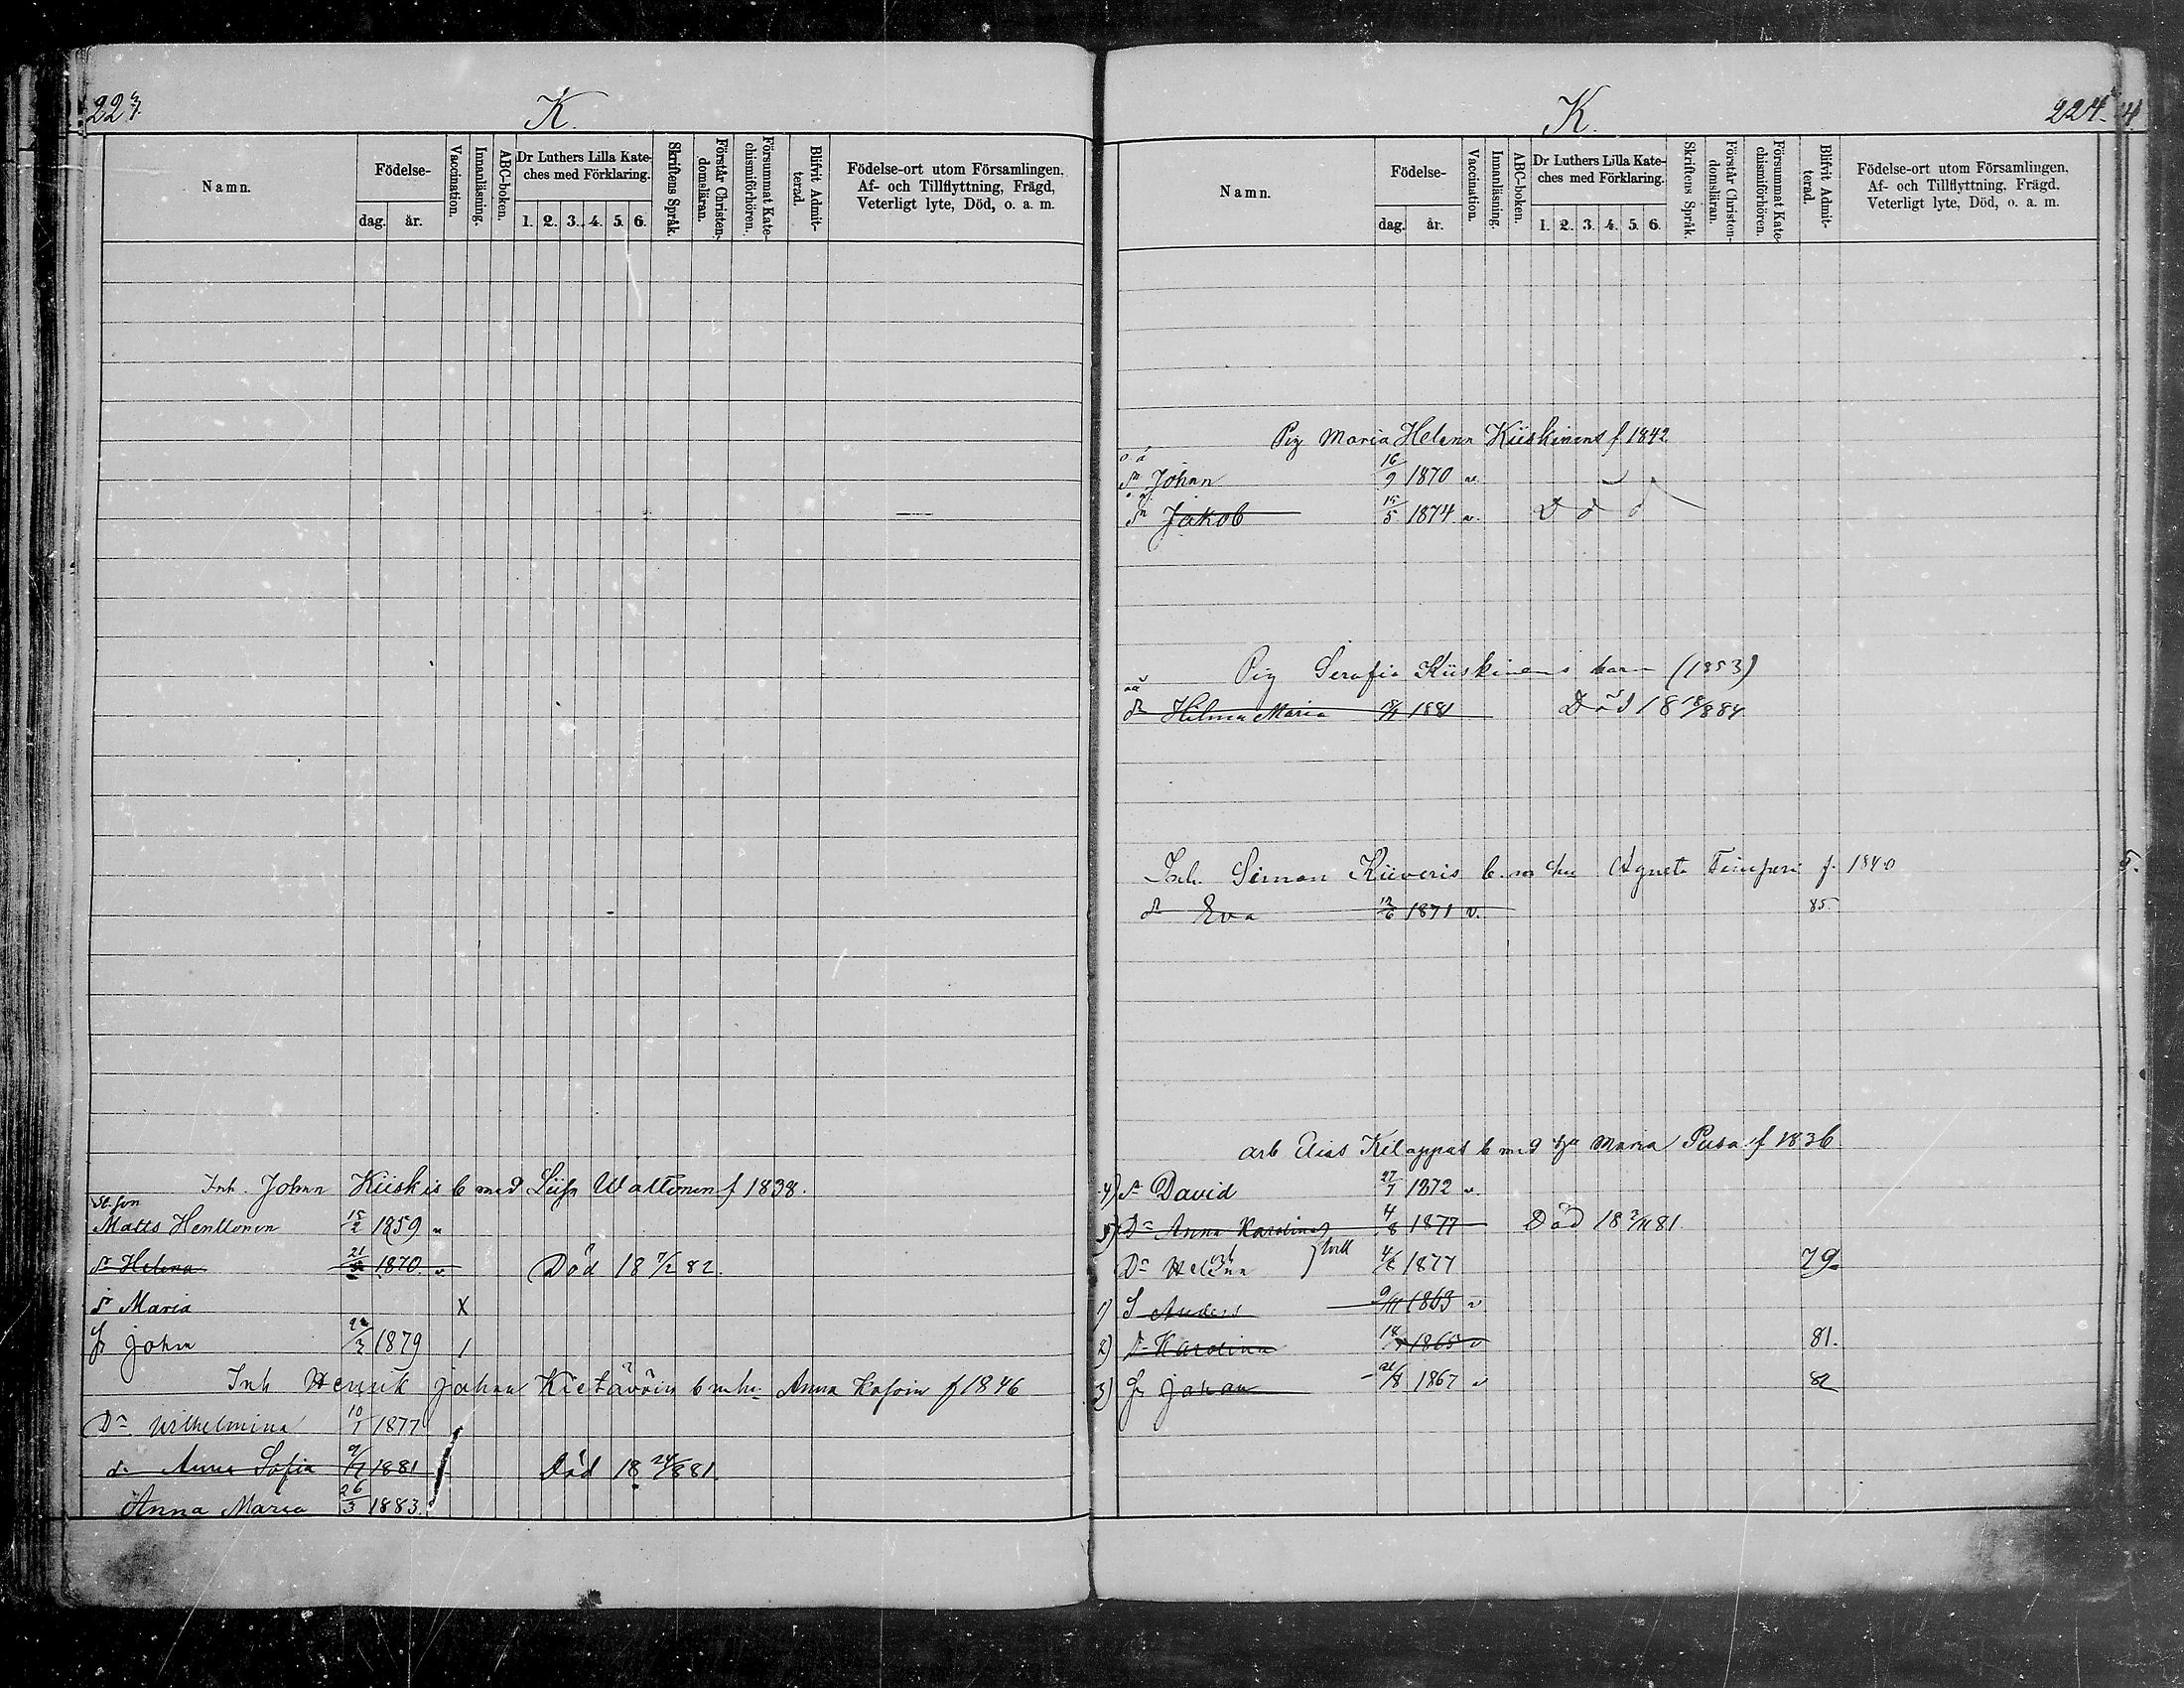 223.
K.
Namn.
Födelse-
dag. år.
Vaccination.
Innanläsning.
ABC-boken.
Dr Luthers Lilla Kate-
ches med Förklaring.
1. 2. 3. 4. 5. 6.
Skriftens Språk.
Förstår Christen-
domsläran.
Försummat Kate-
chismiförhören.
Blifvit Admit-
terad.
Födelse-ort utom Församlingen,
Af- och Tillflyttning, Frägd,
Veterligt lyte, Död, o. a. m.
Inh. Johan Kiiskis b med Liisa Wattonen f 1838.
St. son
Matts Henttonen 15/2 1859 v
Dr Helena 21/ 1870. v Död 18 7/2 82.
Dr Maria X
Johan 1879 /
Inh Henrik Johan Kietävöin b m hu Anna f 1846
Dr Wilhelmina 10/1 1877
dr Anna Sofia 1881 Död 18 24/8 81.
Anna Maria 26/3 1883.
K.
224.
Namn.
Födelse-
dag. år.
Vaccination.
Innanläsning.
ABC-boken.
Dr Luthers Lilla Kate-
ches med Förklaring.
1. 2. 3. 4. 5. 6.
Skriftens Språk.
Förstår Christen-
domsläran.
Försummat Kate-
chismiförhören.
Blifvit Admit-
terad.
Födelse-ort utom Församlingen,
Af- och Tillflyttning, Frägd,
Veterligt lyte, Död, o. a. m.
Pig Maria Helena Kiiskinens f. 1842
o ä
Sn Johan 16/9 1870 v.
o ä
Sn Jakob 15/5 1874 v. D ö d
Pig Serafia Kiiskinens barn (1853)
oä
dr Hilma Maria 1881 Död 18 18/8 84
Inh. Simon Kiiveris b. m hu Agneta f. 1840
dr Eva 1871 v. 85.
arb Elias Kilappas b med hu Maria Pusa f 1836
4) Sn David 27/7 1872 v.
5) Dr Anna Karolina 4/8 1877 Död 18 2/11 81.
Dr Helena tvill 1877 79
1) S Anders 9/11 1863 v
2) Dr Karolina 1865 v 81.
3) Johan /8 1867 v 82